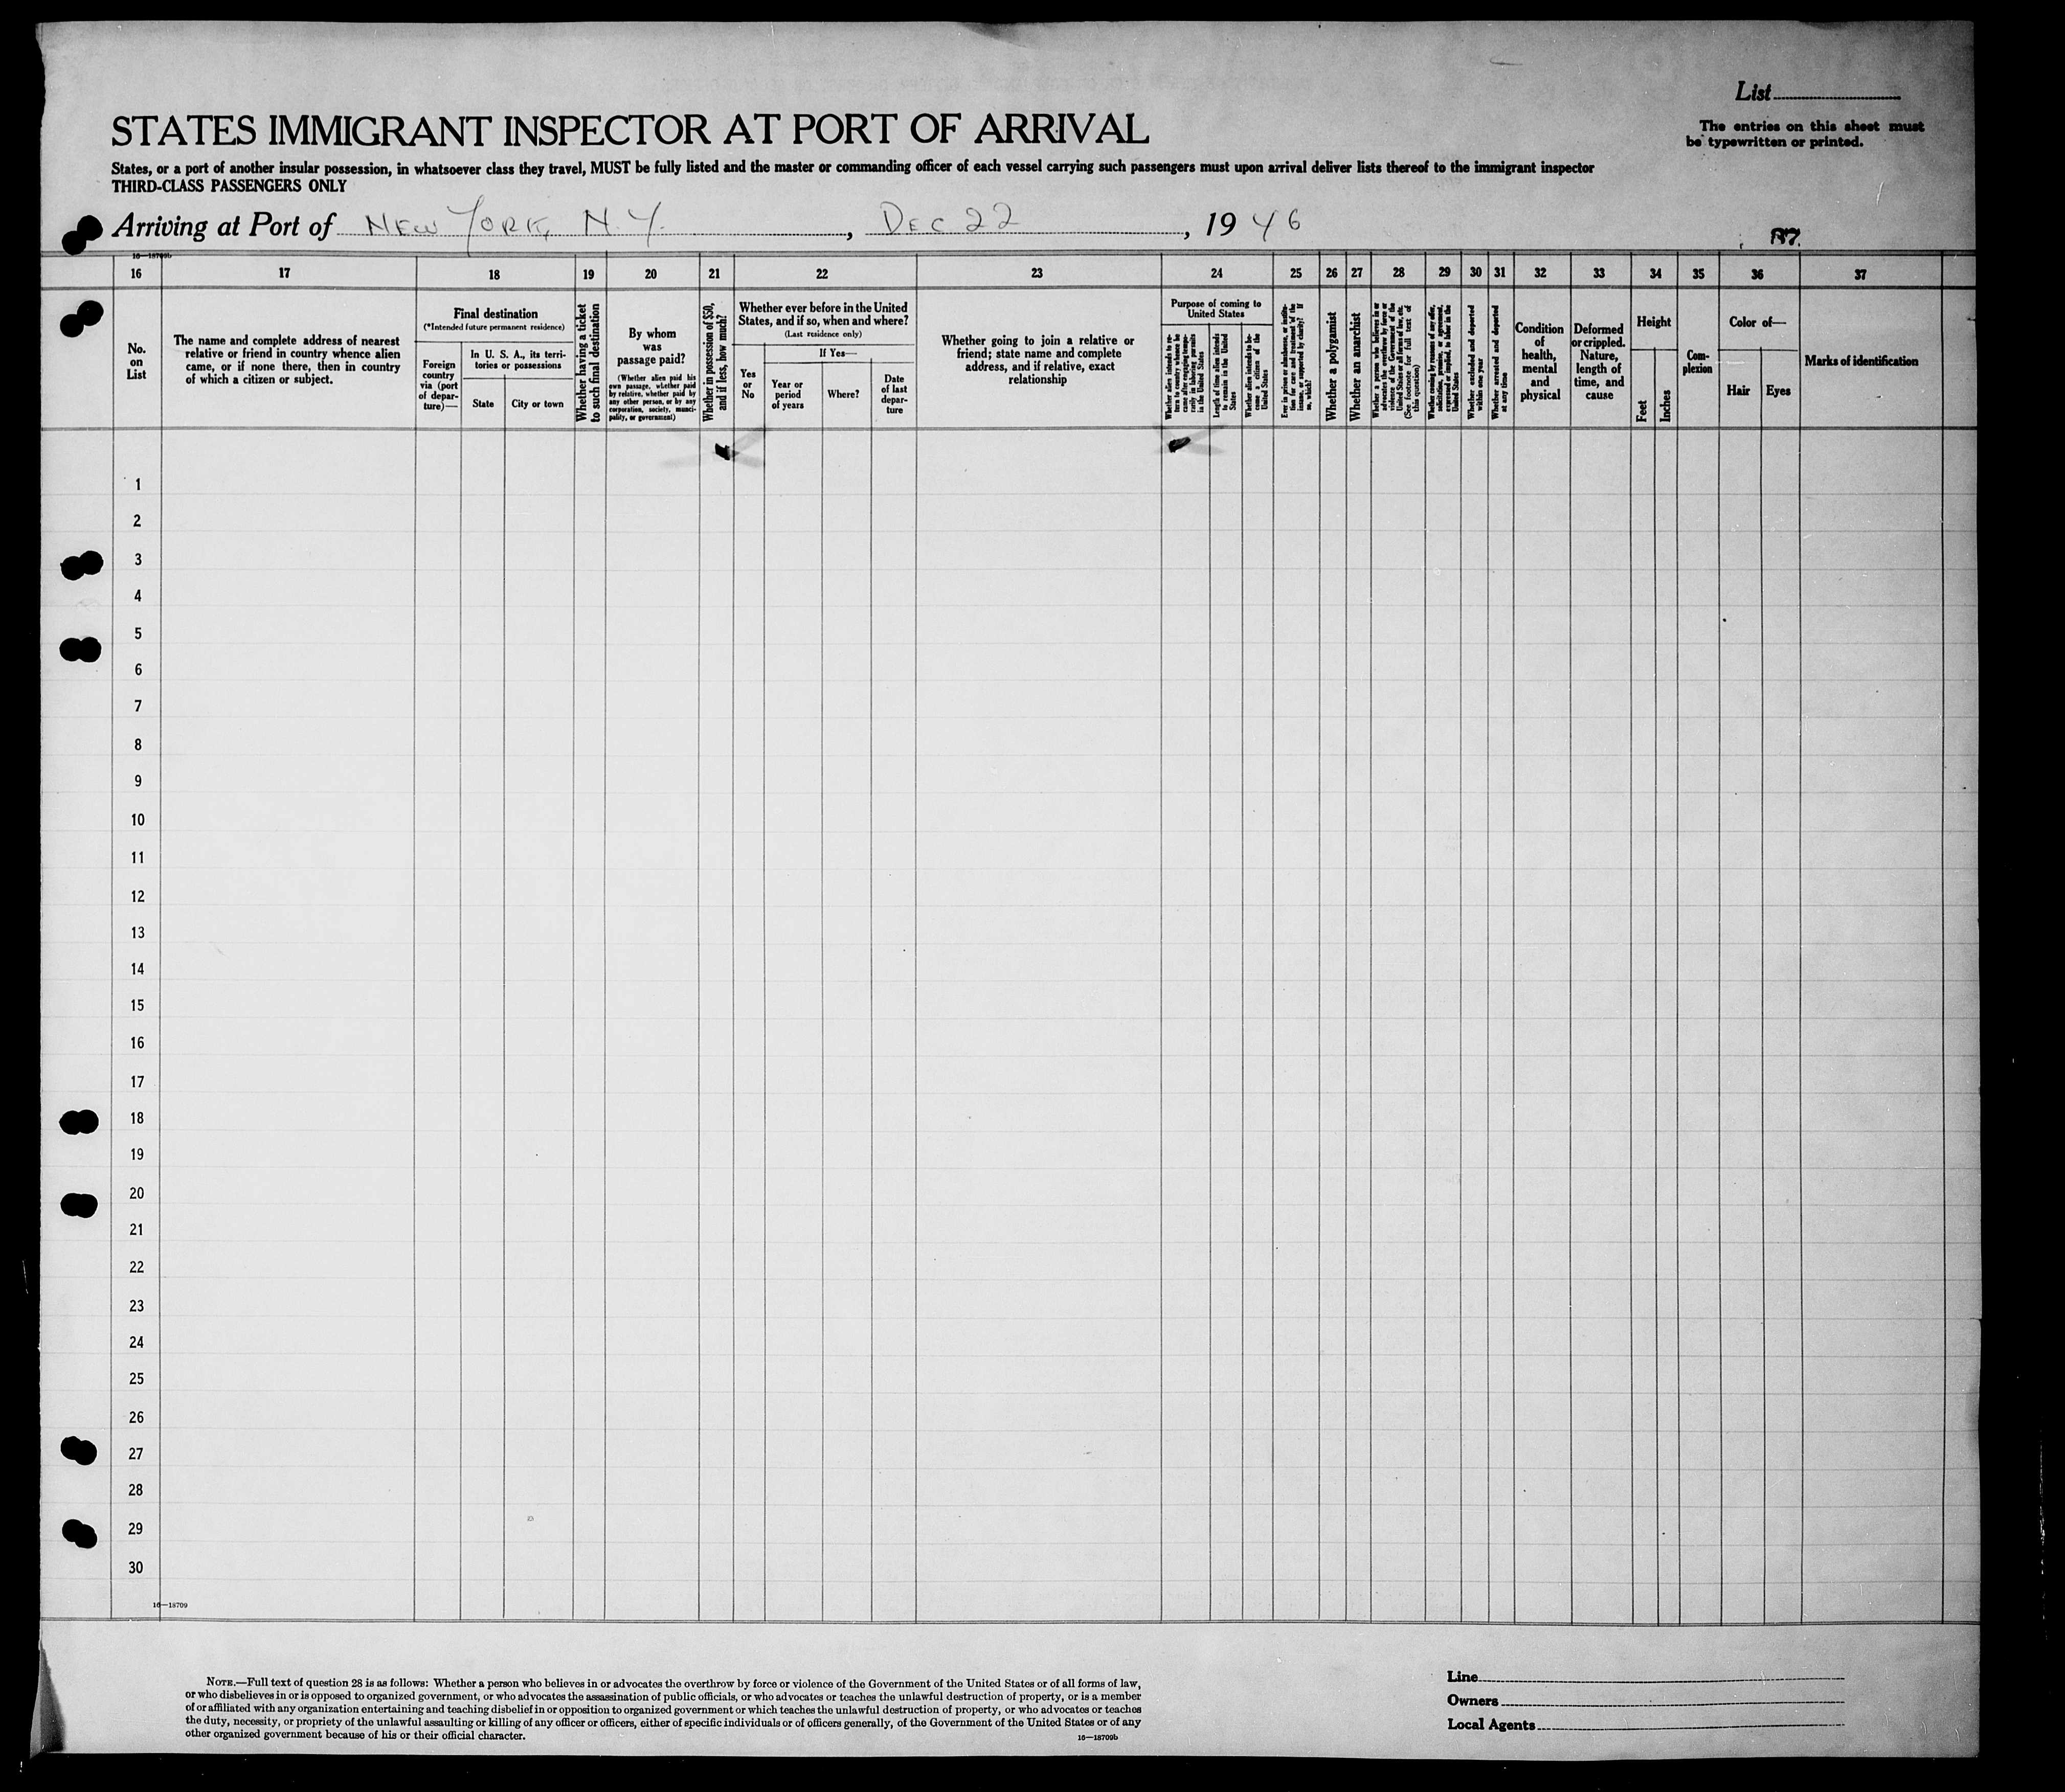 List
STATES IMMIGRANT INSPECTOR AT PORT OF ARRIVAL
The entries on this sheet must
be typewritten or printed.
States, or a port of another insular possession, in whatsoever class they travel, MUST be fully listed and the master or commanding officer of each vessel carrying such passengers must upon arrival deliver lists thereof to the immigrant inspector
THIRD-CLASS PASSENGERS ONLY
Arriving at Port of NEW YORK, N.Y. , DEC 22 , 19 46
16—18709b
16 17 18 19 20 21 22 23 24 25 26 27 28 29 30 31 32 33 34 35 36 37
No.
on
List
The name and complete address of nearest
relative or friend in country whence alien
came, or if none there, then in country
of which a citizen or subject.
Final destination
(*Intended future permanent residence)
Foreign
country
via (port
of depar-
ture)—
In U. S. A., its terri-
tories or possessions
State
City or town
Whether having a ticket
to such final destination
By whom
was
passage paid?
(Whether alien paid his
own passage, whether paid
by relative, whether paid by
any other person, or by any
corporation, society, munici-
pality, or government)
Whether in possession of $50,
and if less, how much?
Whether ever before in the United
States, and if so, when and where?
(Last residence only)
Yes
or
No
If Yes—
Year or
period
of years
Where?
Date
of last
depar-
ture
Whether going to join a relative or
friend; state name and complete
address, and if relative, exact
relationship
Purpose of coming to
United States
Whether alien intends to re-
turn to country whence he
came after engaging tempo-
rarily in laboring pursuits
in the United States
Length of time alien intends
to remain in the United
States
Whether alien intends to be-
come a citizen of the
United States
Ever in prison or almshouse, or institu-
tion for care and treatment of the
insane, or supported by charity? If
so, which?
Whether a polygamist
Whether an anarchist
Whether a person who believes in or
advocates the overthrow by force or
violence of the Government of the
United States or all forms of law, etc.
(See footnote for full text of
this question)
Whether coming by reasons of any offer,
solicitation, promise, or agreement,
expressed or implied, to labor in the
United States
Whether excluded and deported
within one year
Whether arrested and deported
at any time
Condition
of
health,
mental
and
physical
Deformed
or crippled.
Nature,
length of
time, and
cause
Height
Feet
Inches
Com-
plexion
Color of—
Hair
Eyes
Marks of identification
1
2
3
4
5
6
7
8
9
10
11
12
13
14
15
16
17
18
19
20
21
22
23
24
25
26
27
28
29
30
16—18709
NOTE.—Full text of question 28 is as follows: Whether a person who believes in or advocates the overthrow by force or violence of the Government of the United States or of all forms of law,
or who disbelieves in or is opposed to organized government, or who advocates the assassination of public officials, or who advocates or teaches the unlawful destruction of property, or is a member
of or affiliated with any organization entertaining and teaching disbelief in or opposition to organized government or which teaches the unlawful destruction of property, or who advocates or teaches
the duty, necessity, or propriety of the unlawful assaulting or killing of any officer or officers, either of specific individuals or of officers generally, of the Government of the United States or of any
other organized government because of his or their official character.
16—18709b
Line
Owners
Local Agents